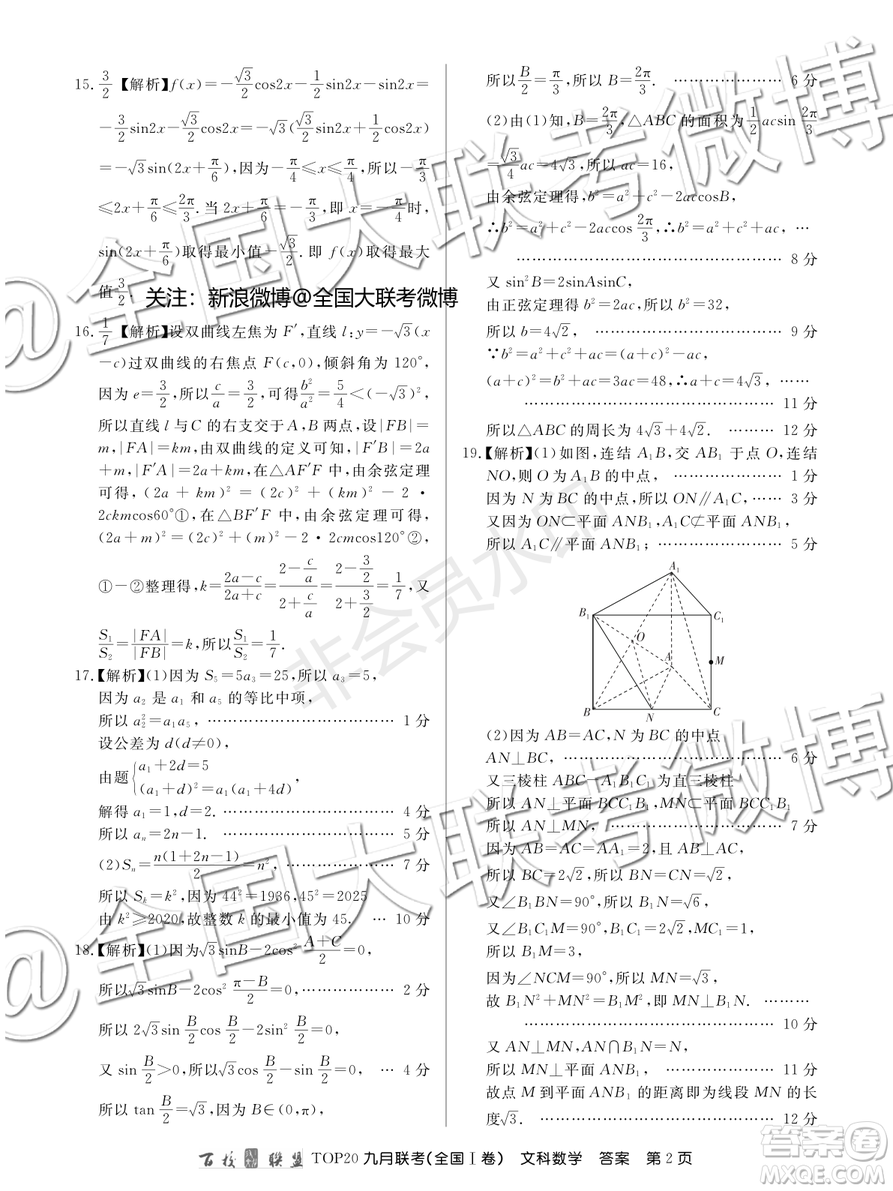 15. 3/2 【解析】f(x)=-√3/2cos2x-1/2sin2x-sin2x=
-3/2sin2x-√3/2cos2x=-√3(√3/2sin2x+1/2cos2x)
=-√3sin(2x+π/6),因为-π/4≤x≤π/4,所以-π/3
≤2x+π/6≤2π/3.当2x+π/6=-π/3,即x=-π/4时,
sin(2x+π/6)取得最小值-√3/2.即f(x)取得最大
值3/2.
关注：新浪微博@全国大联考微博
16. 1/7 【解析】设双曲线左焦为F′,直线l:y=-√3(x
-c)过双曲线的右焦点F(c,0),倾斜角为120°,
因为e=3/2,所以c/a=3/2,可得b²/a²=5/4<(-√3)²,
所以直线l与C的右支交于A,B两点,设|FB|=
m,|FA|=km,由双曲线的定义可知,|F′B|=2a
+m,|F′A|=2a+km,在△AF′F中,由余弦定理
可得,(2a+km)²=(km)²+(2c)²-2·
2ckmcos60°①,在△BF′F中,由余弦定理可得,
(2a+m)²=(2c)²+m²-2·2cmcos120°②,
①-②整理得,k=(2a-c)/(2a+c)=(2-c/a)/(2+c/a)=(2-3/2)/(2+3/2)=1/7,又
S₁/S₂=|FA|/|FB|=k,所以S₁/S₂=1/7.
17.【解析】(1)因为S₅=5a₃=25,所以a₃=5,
因为a₂是a₁和a₅的等比中项,
所以a₂²=a₁a₅, ………… 1分
设公差为d(d≠0),
由题{a₁+2d=5
(a₁+d)²=a₁(a₁+4d)
解得a₁=1,d=2. ………… 4分
所以aₙ=2n-1. ………… 5分
(2)Sₙ=n(1+2n-1)/2=n², ………… 7分
所以Sₖ=k²,因为44²=1936,45²=2025
由k²≥2020,故整数k的最小值为45. … 10分
18.【解析】(1)因为√3sinB-2cos²(A+C)/2=0,
所以√3sinB-2cos²(π-B)/2=0, ………… 2分
所以2√3sin B/2 cos B/2-2sin² B/2=0,
又sin B/2>0,所以√3cos B/2-sin B/2=0, … 4分
所以tan B/2=√3,因为B∈(0,π),
所以B/2=π/3,所以B=2π/3. ………… 6分
(2)由(1)知,B=2π/3,△ABC的面积为1/2acsin 2π/3
=√3/4ac=4√3,所以ac=16,
由余弦定理得,b²=a²+c²-2accosB,
∴b²=a²+c²-2accos 2π/3,∴b²=a²+c²+ac, …
………… 8分
又sin²B=2sinAsinC,
由正弦定理得b²=2ac,所以b²=32,
所以b=4√2, ………… 9分
∵b²=a²+c²+ac=2ac,
(a+c)²=b²+ac=3ac=48,∴a+c=4√3,…
………… 11分
所以△ABC的周长为4√3+4√2. ……… 12分
19.【解析】(1)如图,连结A₁B,交AB₁于点O,连结
NO,则O为A₁B的中点, ………… 1分
因为N为BC的中点,所以ON∥A₁C,…… 3分
又因为ON⊂平面ANB₁,A₁C⊄平面ANB₁,
所以A₁C∥平面ANB₁; ………… 5分
A₁
B₁
C₁
O
A
M
B
N
C
(2)因为AB=AC,N为BC的中点
AN⊥BC, ………… 6分
又三棱柱ABC-A₁B₁C₁为直三棱柱
所以AN⊥平面BCC₁B₁,MN⊂平面BCC₁B₁
所以AN⊥MN, ………… 7分
因为AB=AC=AA₁=2,且AB⊥AC,
所以BC=2√2,所以BN=CN=√2,
又∠B₁BN=90°,所以B₁N=√6,
又∠B₁C₁M=90°,B₁C₁=2√2,C₁M=1,
所以B₁M=3,
因为∠NCM=90°,所以MN=√3,
故B₁N²+MN²=B₁M²,即MN⊥B₁N. ………
………… 10分
又AN⊥MN,AN∩B₁N=N,
所以MN⊥平面ANB₁, ………… 11分
故点M到平面ANB₁的距离即为线段MN的长
度√3. ………… 12分
百校联盟 TOP20九月联考(全国Ⅰ卷) 文科数学 答案 第2页
@全国大联考微博
@全国大联考微博
非会员水印
答案圈